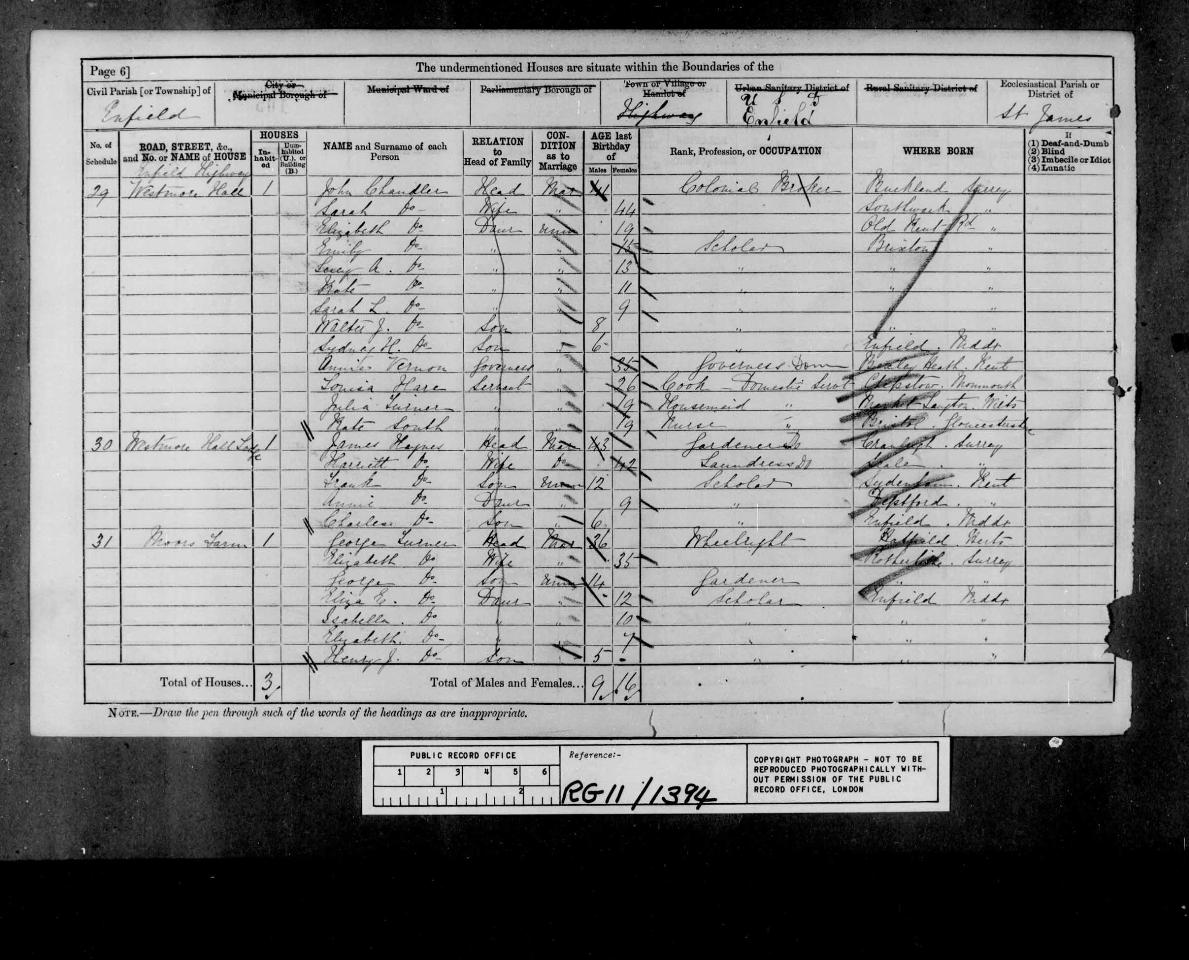 Page 6]
The undermentioned Houses are situate within the Boundaries of the
Civil Parish [or Township] of
City or Municipal Borough of
Municipal Ward of
Parliamentary Borough of
Town or Village or Hamlet of
Urban Sanitary District of
Rural Sanitary District of
Ecclesiastical Parish or District of
Enfield
Highway
U S D
Enfield
St James
No. of Schedule
ROAD, STREET, &c., and No. or NAME of HOUSE
HOUSES
Inhabited
Uninhabited (U.), or Building (B.)
NAME and Surname of each Person
RELATION to Head of Family
CONDITION as to Marriage
AGE last Birthday of
Males
Females
Rank, Profession, or OCCUPATION
WHERE BORN
If
(1) Deaf-and-Dumb
(2) Blind
(3) Imbecile or Idiot
(4) Lunatic
Enfield Highway
29 Westmore Hall 1 John Chandler Head Mar 41 Colonial Broker Buckland Surrey
Sarah Do Wife " 44 Southwark "
Elizabeth Do Daur Unm 19 Old Kent Rd "
Emily Do " " 15 Scholar Brixton "
Lucy A. Do " " 13 " " "
Kate Do " " 11 "
Sarah L Do " " 9 "
Walter J. Do Son " 8 " " "
Sydney H. Do Son " 6 " Enfield. Middx
Annie Vernon Governess " 35 Governess Dom Bexley Heath. Kent
Louisa Hare Servant " 26 Cook - Domestic Servt Chepstow. Monmouth
Julia Turner " " 19 Housemaid " Wilts
Kate South " " 19 Nurse " Bristol. Gloucestershire
30 Westmore Hall Lodge 1 James Haynes Head Mar 43 Gardener Do Cranleigh. Surrey
Harriett Do Wife Do 42 Laundress Do "
Frank Do Son Unm 12 Scholar Sydenham. Kent
Annie Do Daur " 9 " Deptford. "
Charles Do Son " 6 " Enfield. Middx
31 Moors Farm 1 George Turner Head Mar 36 Wheelright Hatfield. Herts
Elizabeth Do Wife " 35 Rotherhithe. Surrey
George Do Son Unm 14 Gardener " "
Eliza E. Do Daur " 12 Scholar Enfield Middx
Isabella. Do " " 10 " " "
Elizabeth. Do " " 7 " " "
Henry J. Do Son " 5 " "
Total of Houses... 3
Total of Males and Females... 9 16
NOTE.—Draw the pen through such of the words of the headings as are inappropriate.
PUBLIC RECORD OFFICE
1 2 3 4 5 6
1 2
Reference:-
RG11/1394
COPYRIGHT PHOTOGRAPH - NOT TO BE
REPRODUCED PHOTOGRAPHICALLY WITH-
OUT PERMISSION OF THE PUBLIC
RECORD OFFICE, LONDON